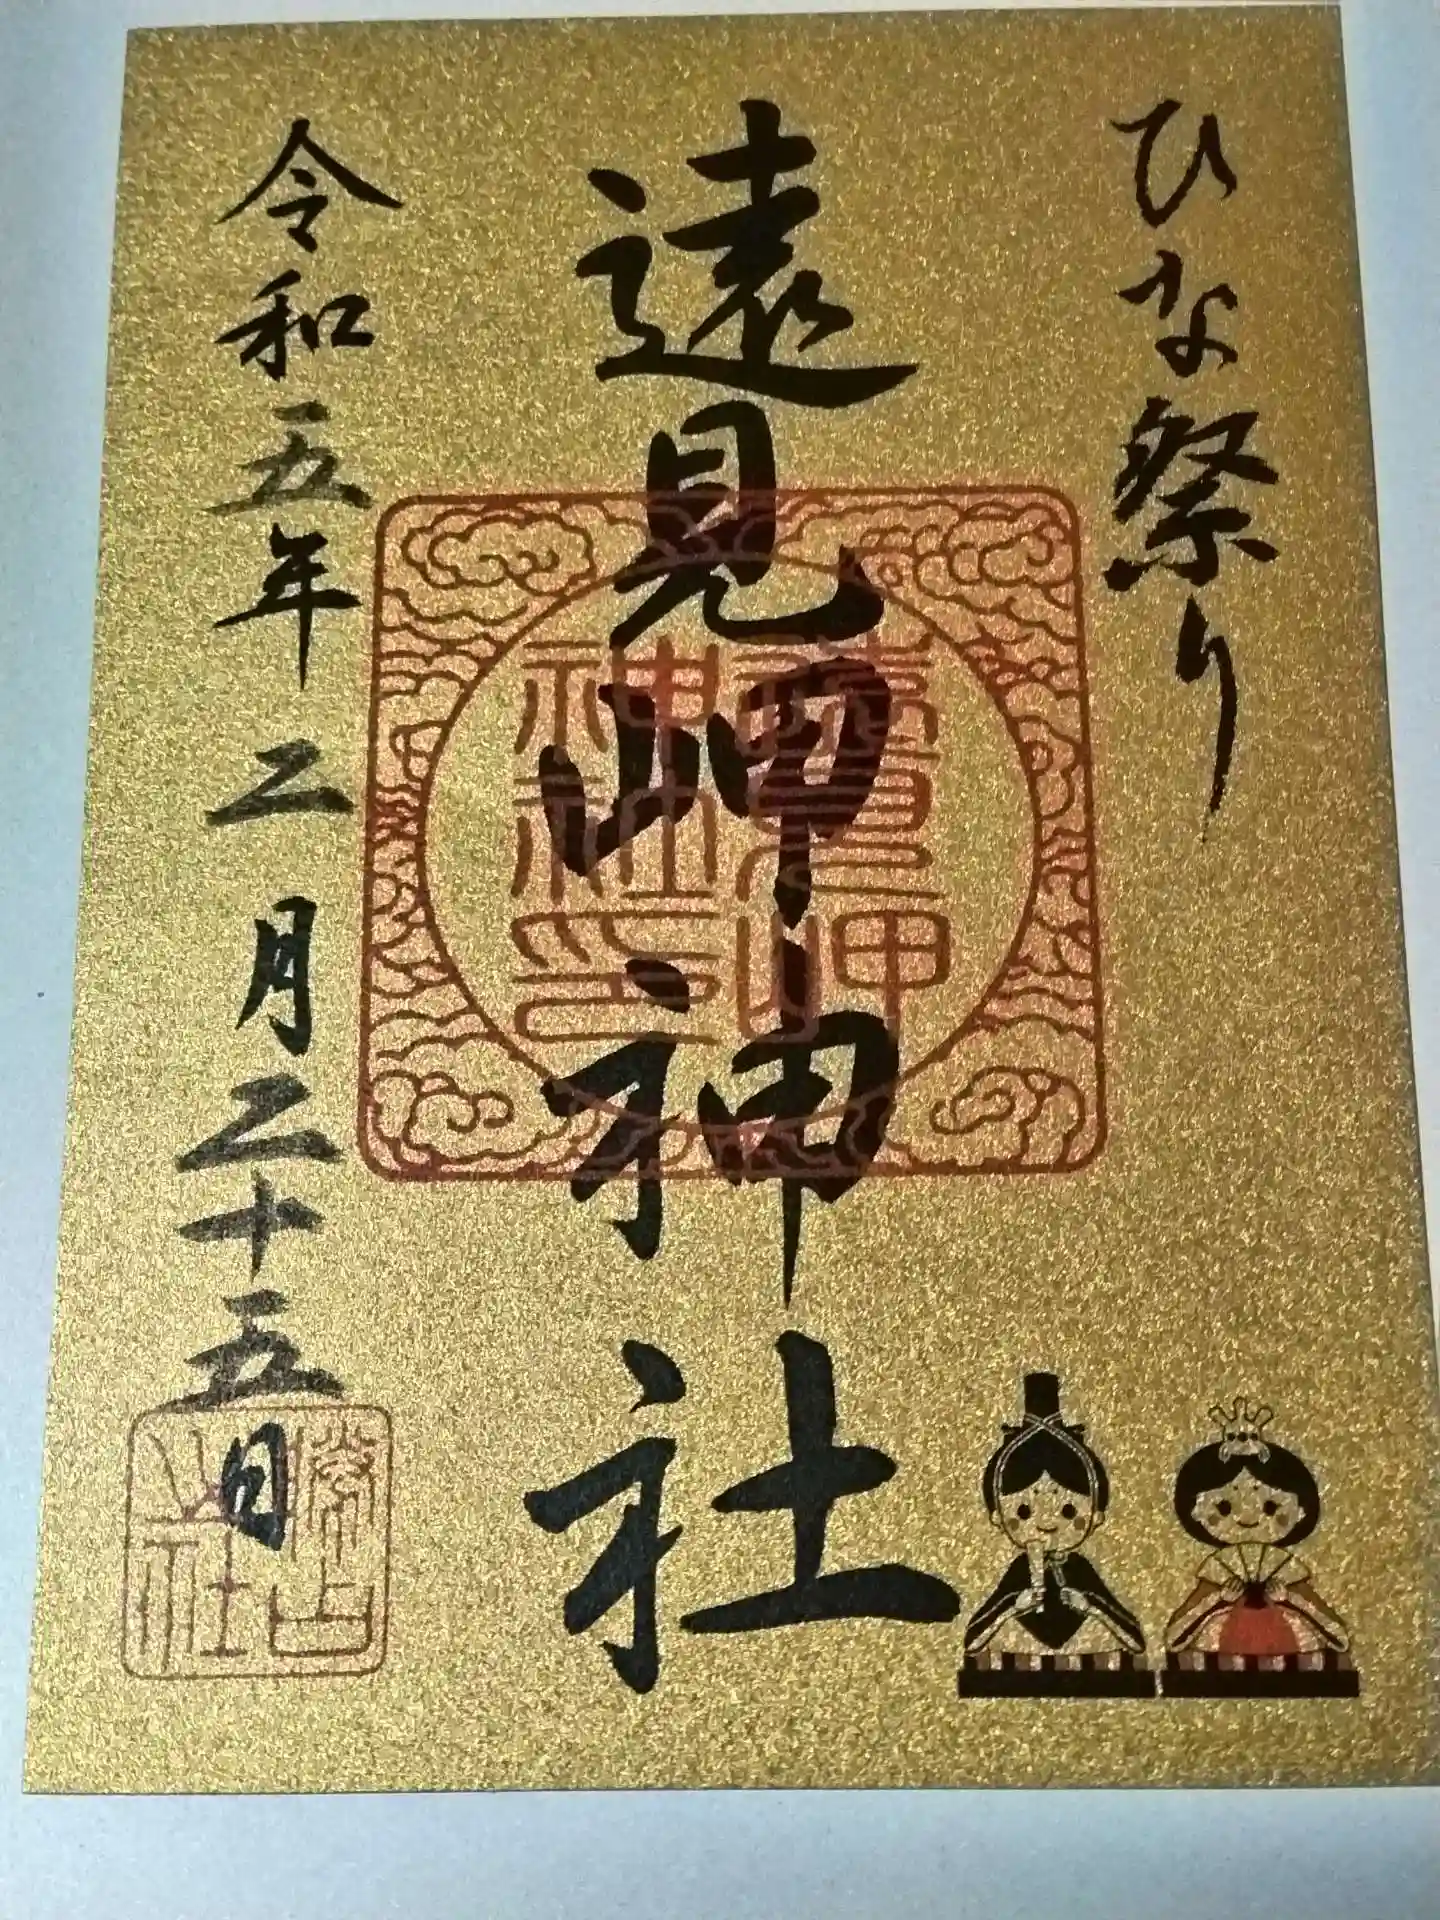 ひな祭り
遠見岬神社
令和五年二月二十五日
遠見岬
神社印